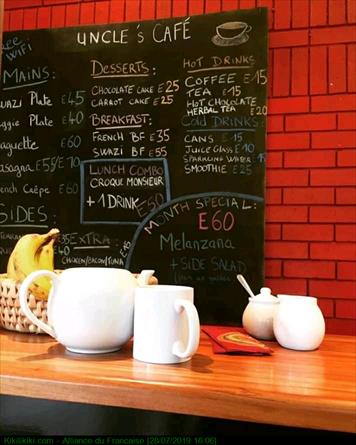 UNCLE's CAFÉ
FREE WIFI
MAINS:
SWAZI Plate E45
Veggie Plate E40
Baguette E60
Lasagna E55/E70
French Crêpe E60
SIDES:
DESSERTS:
CHOCOLATE CAKE E25
CARROT CAKE E25
BREAKFAST:
FRENCH BF E35
SWAZI BF E55
LUNCH COMBO
CROQUE MONSIEUR
+ 1 DRINK E50
EXTRA:
CHICKEN/BACON/TUNA
HOT DRINKS
COFFEE E15
TEA E15
HOT CHOCOLATE
HERBAL TEA E20
COLD DRINKS
CANS E15
JUICE GLASS E10
SPARKLING WATER E15
SMOOTHIE E25
MONTH SPECIAL:
E60
Melanzana
+ SIDE SALAD
Kikilikiki.com - Alliance du Francaise [28/07/2019 16:06]